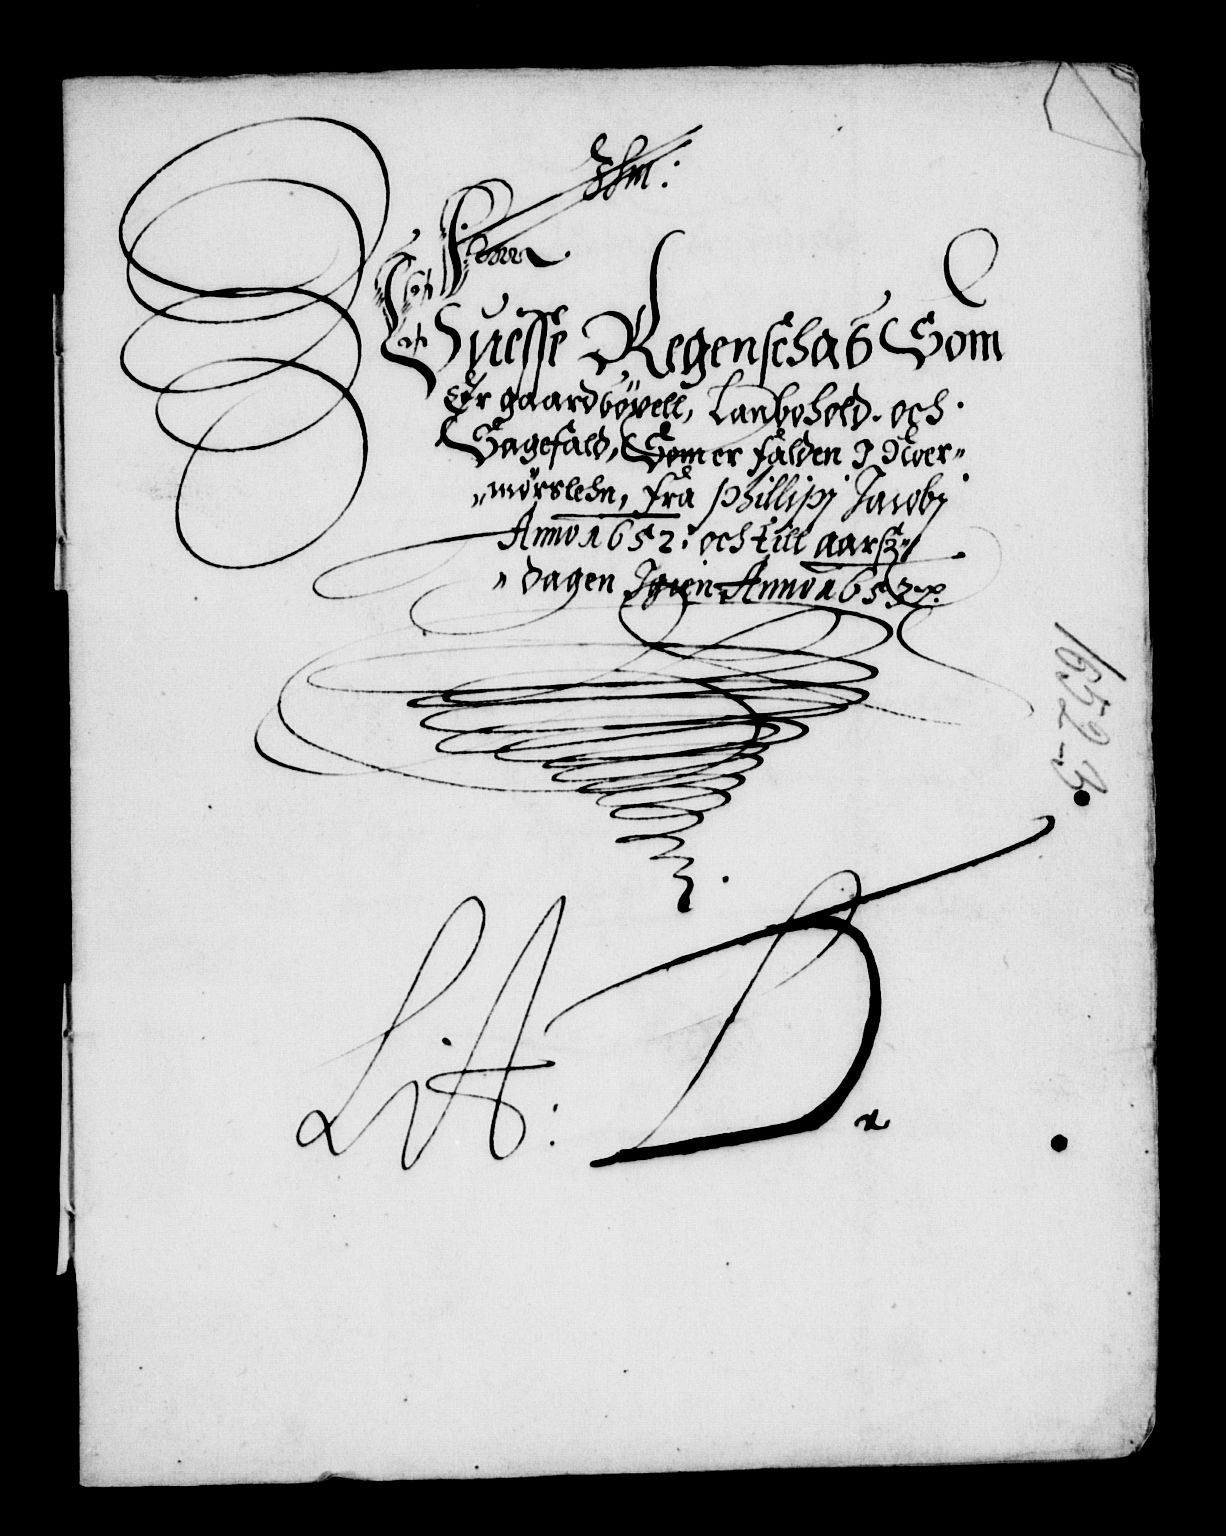 Jhm:
Herr
Visse Regenschab Som
Er gaardbøxell, Landbohold. och
Sagefald, Som er falden J Noer-
mørslehn, fra Phillipj Jacobj
Anno 1652. och till aarsz-
dagen Jgien Anno 1653
LitA: D.
1652-3